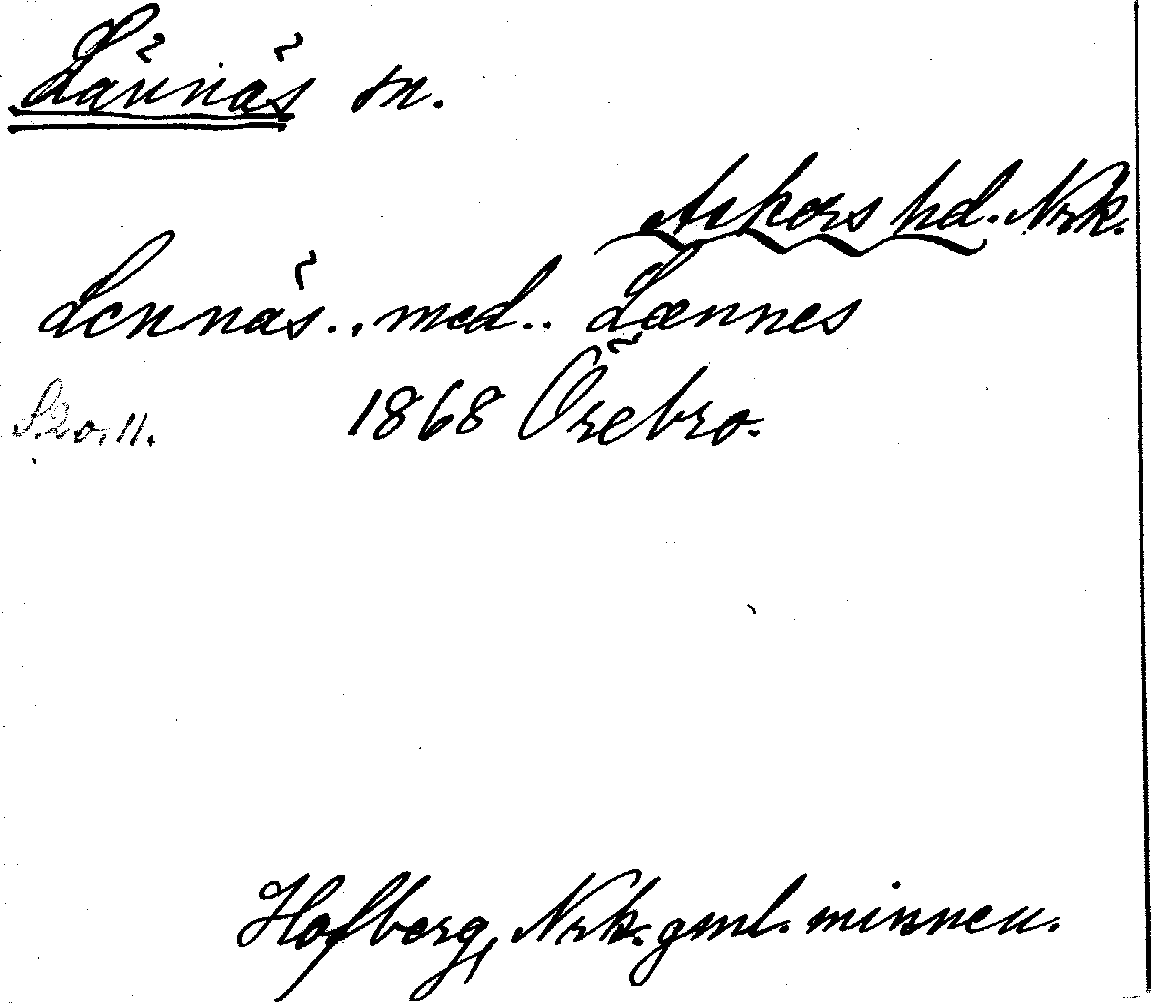 Lännäs sn.
Askers hd. Nrk.
Lennäs.., med.. Lænnes
S. 20. 11. 1868 Örebro.
Hofberg, Nrk. gml. minnen.